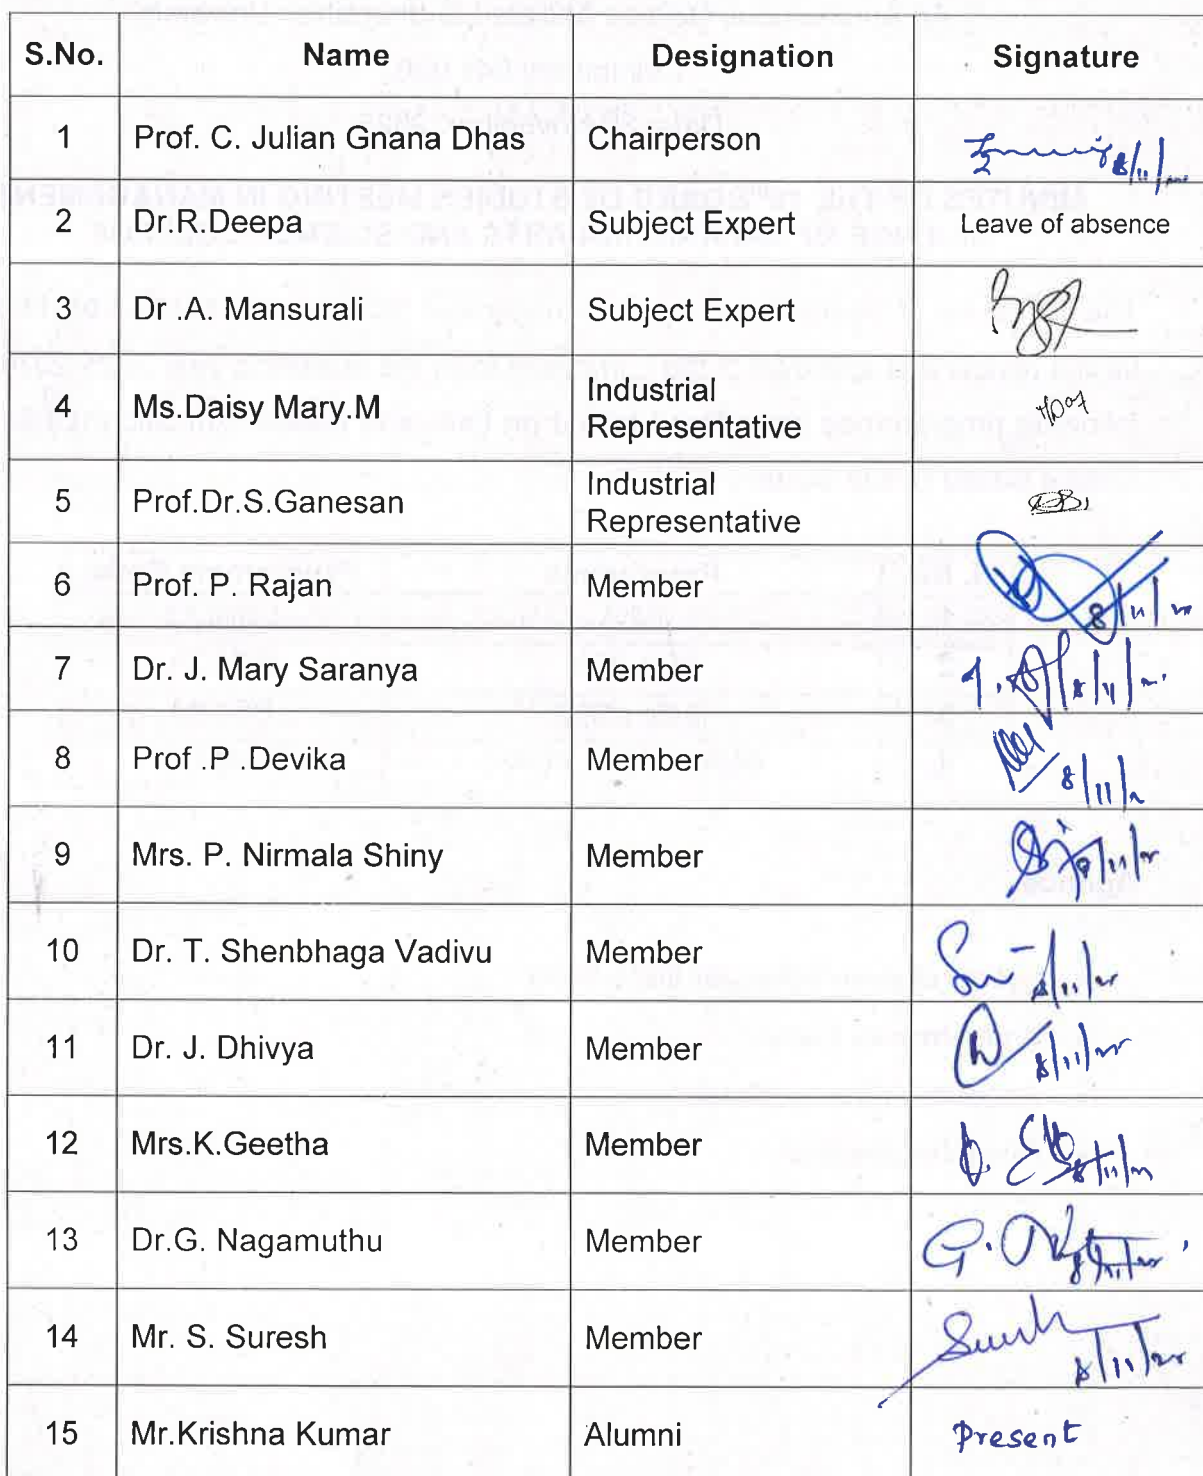 S.No. Name Designation Signature
1 Prof. C. Julian Gnana Dhas Chairperson 8/11/
2 Dr.R.Deepa Subject Expert Leave of absence
3 Dr .A. Mansurali Subject Expert
4 Ms.Daisy Mary.M Industrial
Representative
5 Prof.Dr.S.Ganesan Industrial
Representative
6 Prof. P. Rajan Member 8/11/
7 Dr. J. Mary Saranya Member 8/11/
8 Prof .P .Devika Member 8/11/
9 Mrs. P. Nirmala Shiny Member 8/11/
10 Dr. T. Shenbhaga Vadivu Member 8/11/
11 Dr. J. Dhivya Member 8/11/
12 Mrs.K.Geetha Member 8/11/
13 Dr.G. Nagamuthu Member 8/11/
14 Mr. S. Suresh Member 8/11/
15 Mr.Krishna Kumar Alumni Present